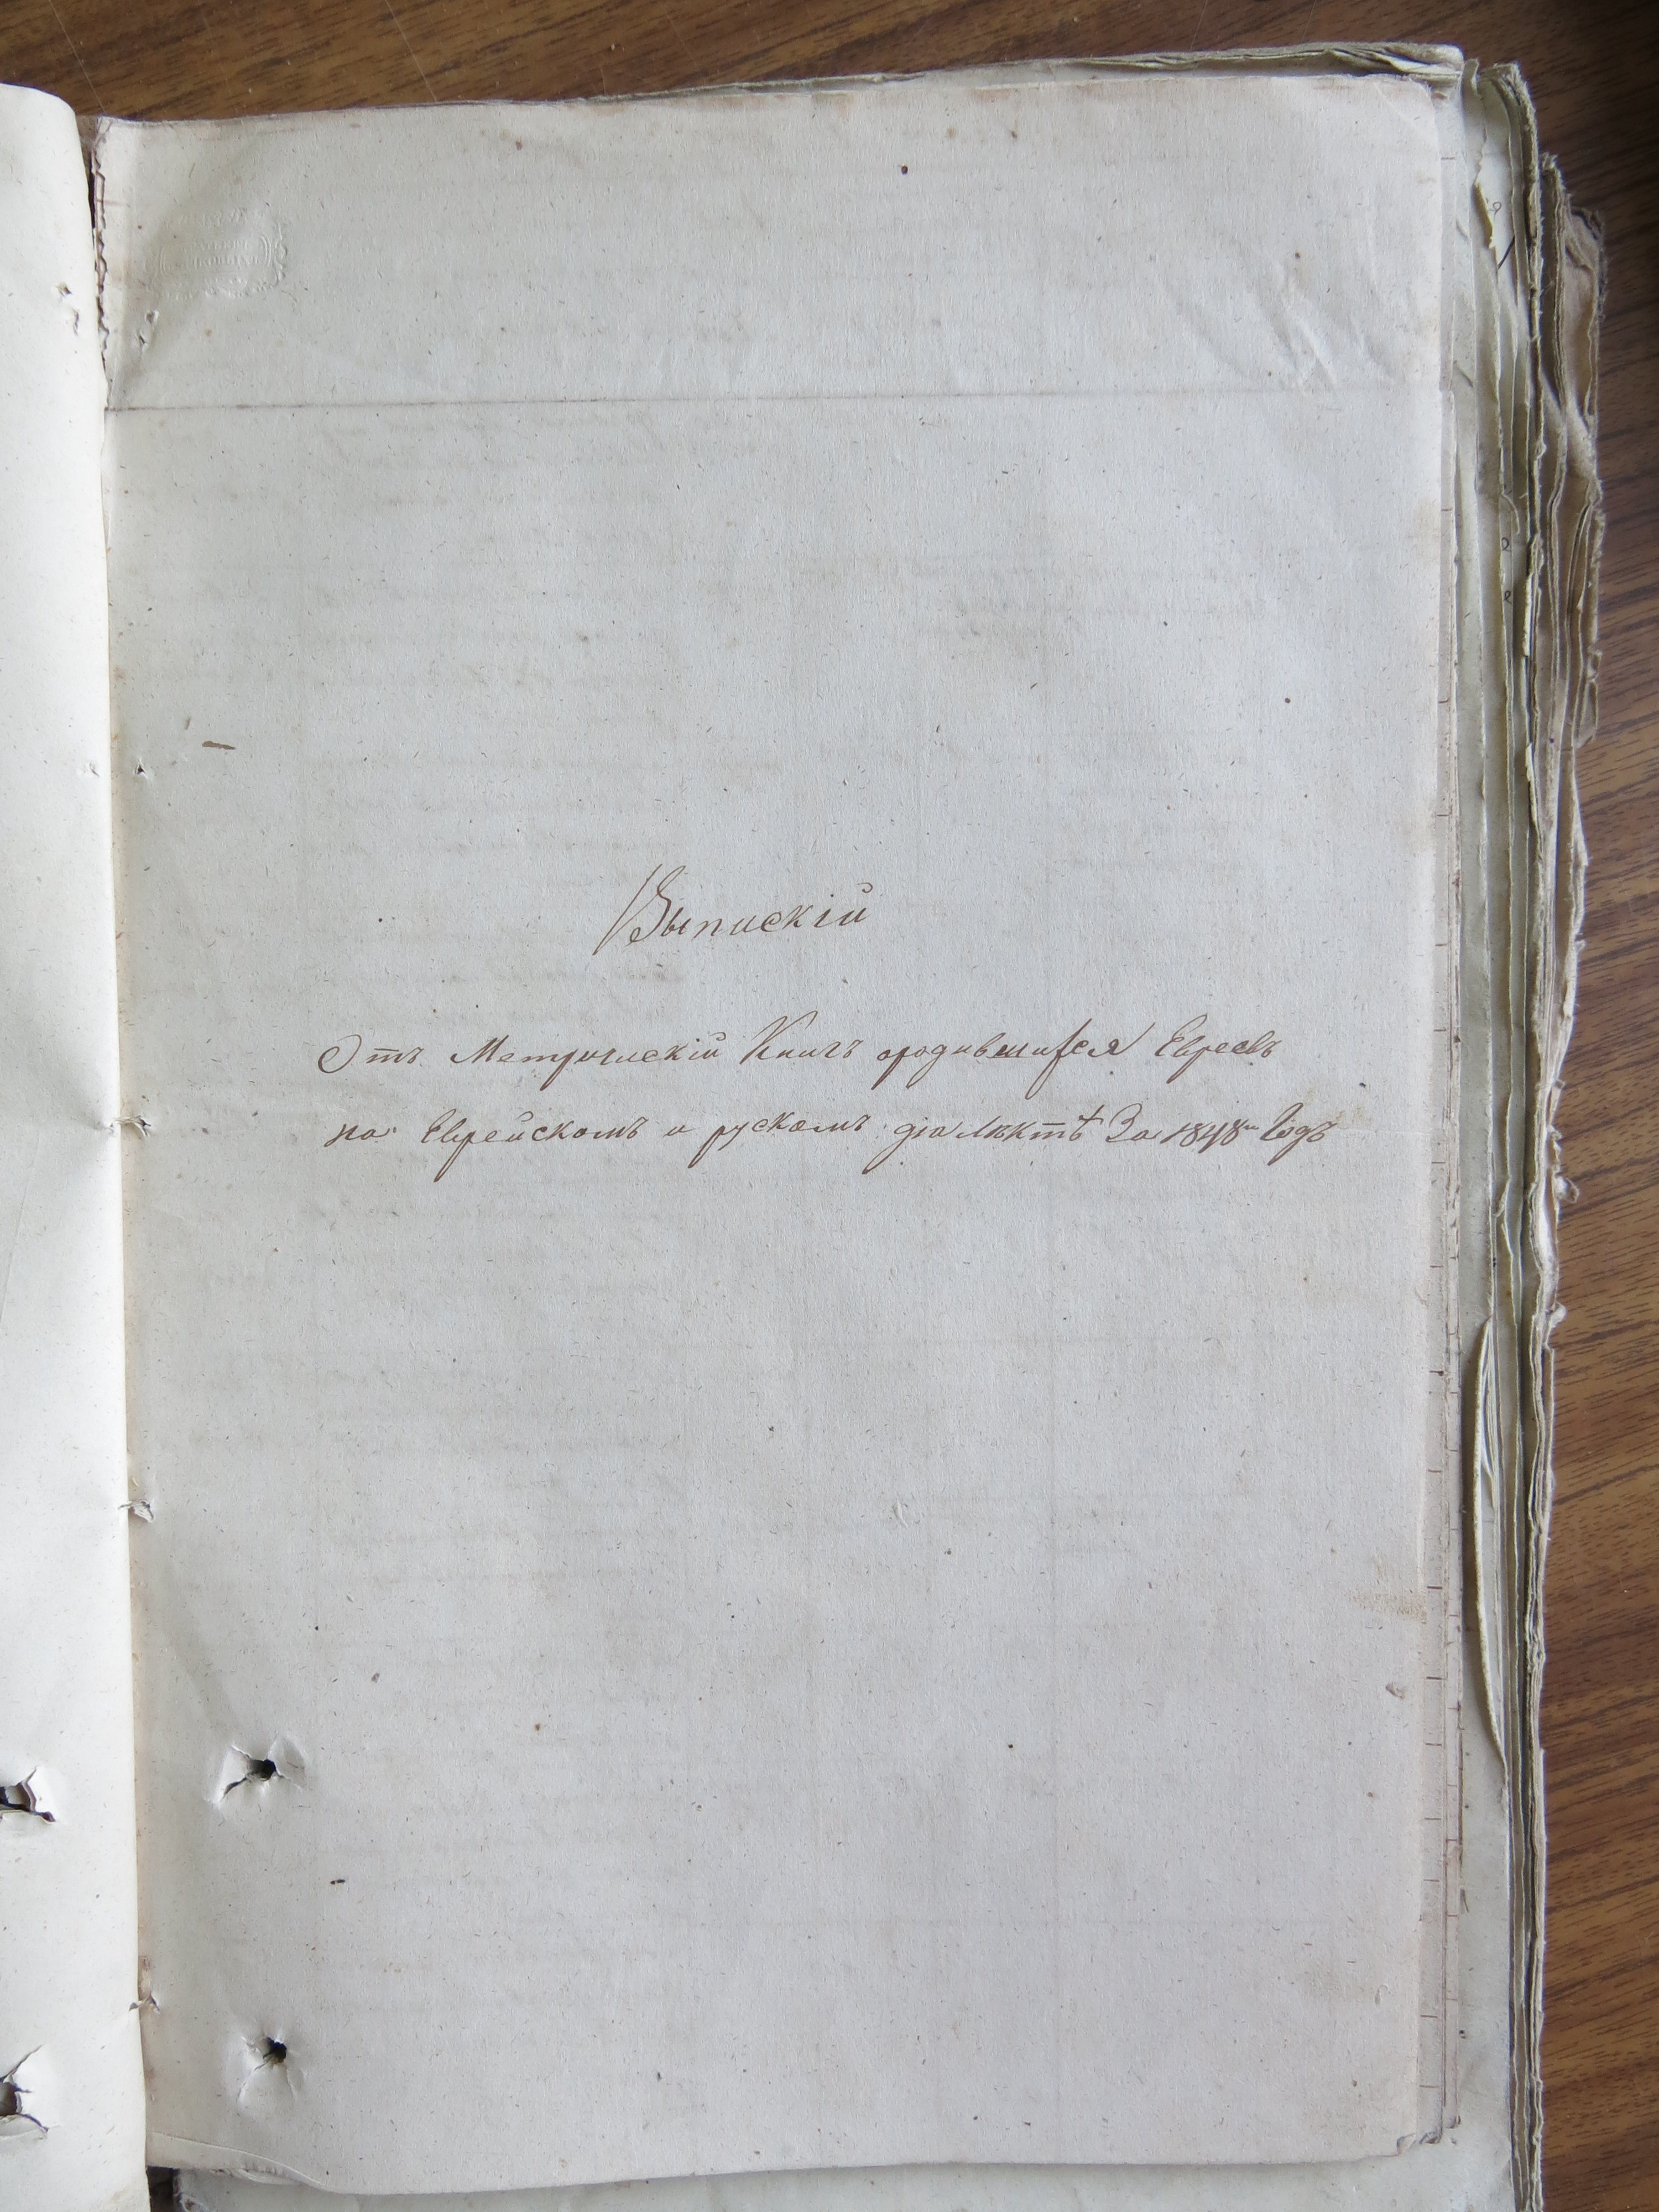 Выпискій
Отъ Метрическій Книгъ ородившихся Евреевъ
на Еврейскомъ и рускомъ диалѣктѣ За 1848й Годъ